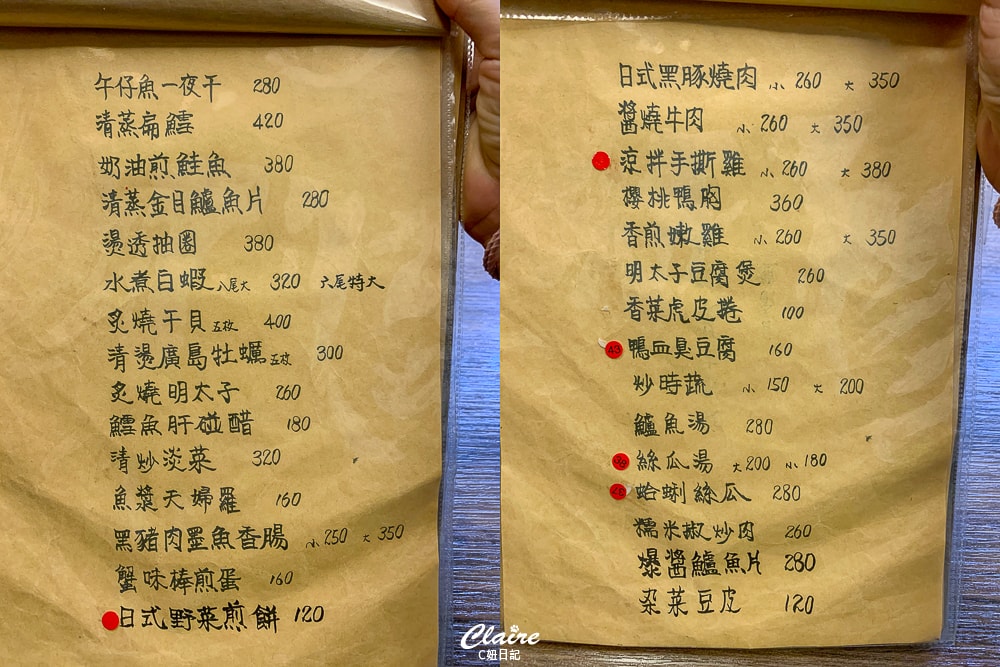 午仔魚一夜干 280
清蒸扁鱈 420
奶油煎鮭魚 380
清蒸金目鱸魚片 280
燙透抽圈 380
水煮白蝦 八尾大 320 六尾特大
炙燒干貝 五枚 400
清燙廣島牡蠣 五枚 300
炙燒明太子 260
鱈魚肝碰醋 180
清炒淡菜 320
魚漿天婦羅 160
黑豬肉墨魚香腸 小 250 大 350
蟹味棒煎蛋 160
日式野菜煎餅 120
日式黑豚燒肉 小 260 大 350
醬燒牛肉 小 260 大 350
涼拌手撕雞 小 260 大 380
櫻桃鴨胸 360
香煎嫩雞 小 260 大 350
明太子豆腐煲 260
香菜虎皮捲 100
鴨血臭豆腐 160
炒時蔬 小 150 大 200
鱸魚湯 280
絲瓜湯 大 200 小 180
蛤蜊絲瓜 280
糯米椒炒肉 260
爆醬鱸魚片 280
杂菜豆皮 120
Claire
C妞日記